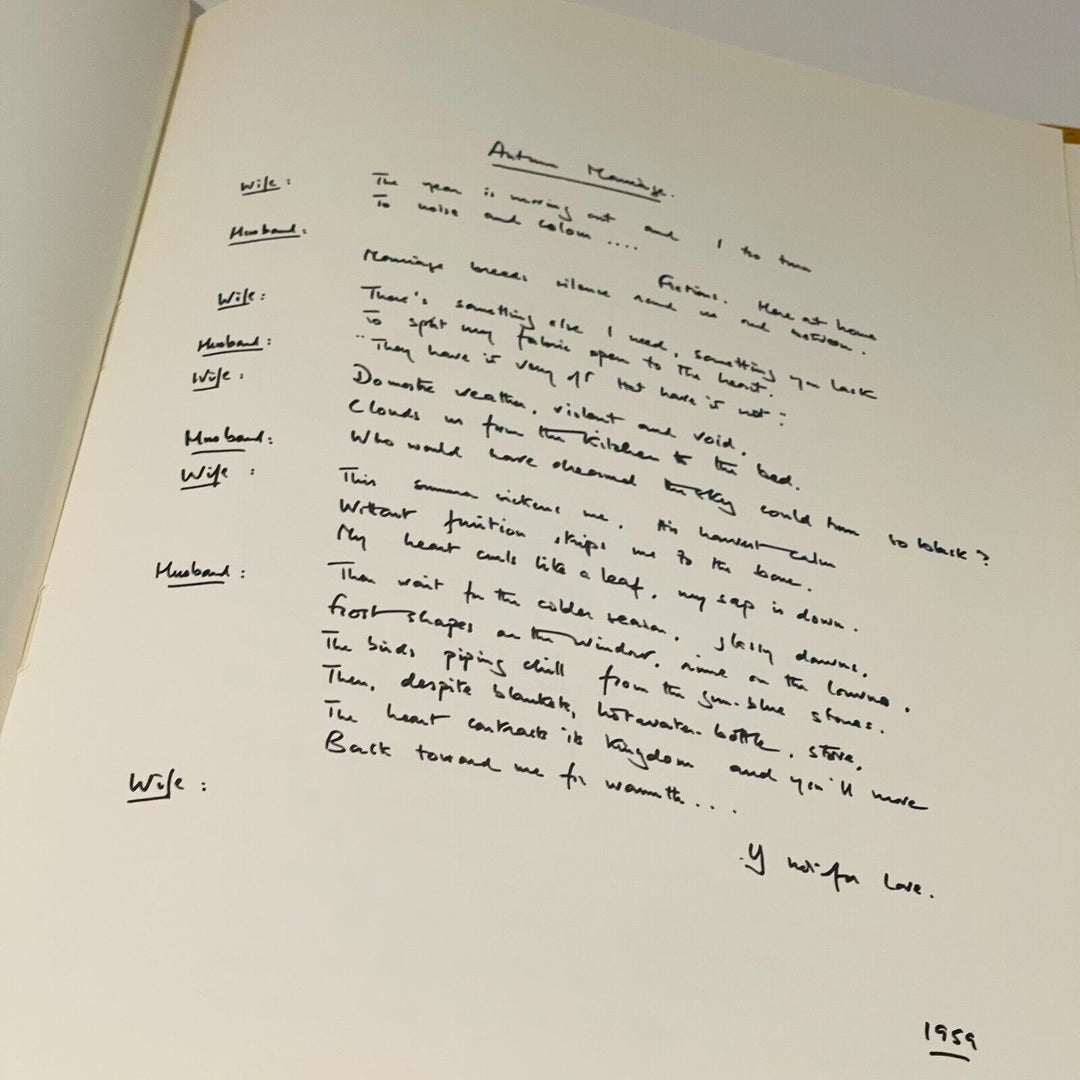 Autumn Marriage.
Wife: The year is moving out and I too turn
To noise and colour ....
Husband: Fictions. Here at home
Marriage breeds silence round us and between.
Wife: There's something else I need, something you lack
To split my fabric open to the heart.
Husband: "They have is very if that have is not:
Wife: Domestic weather, violent and void,
Clouds us from the kitchen to the bed.
Husband: Who would have dreamed the sky could turn to black?
Wife: This summer sickens me. Its harvest calm
Without fruition strips me to the bone.
My heart curls like a leaf, my sap is down.
Husband: Then wait for the colder season, glassy dawns,
Frost shapes on the window, rime on the lawns.
The birds piping chill from the gun-blue stones.
Then, despite blankets, hot-water-bottle, stove,
The heart contracts its kingdom and you'll move
Back toward me for warmth...
Wife: If not for love.
1959